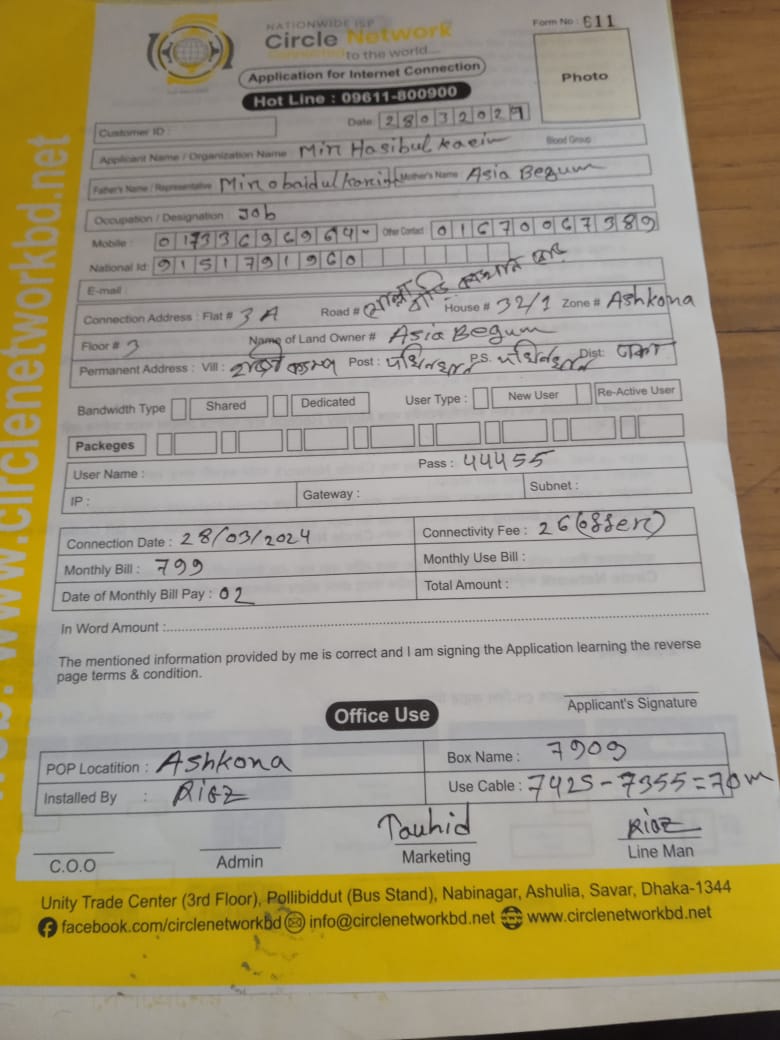 NATIONWIDE ISP
Circle Network
Connecting to the world....
Form No : 611
Application for Internet Connection
Hot Line : 09611-800900
Photo
Date: 28032024
Customer ID :
Applicant Name / Organization Name Blood Group :
Father's Name / Representative Mother's Name : Asia Begum
Occupation / Designation : Job
Mobile : 0173369696 Other Contact 01670067389
National Id: 9151791960
E-mail :
Connection Address : Flat # 3A Road # House # 32/1 Zone # Ashkona
Floor # 3 Name of Land Owner # Asia Begum
Permanent Address : Vill : Post : P.S. Dist: ঢাকা
Bandwidth Type Shared Dedicated User Type : New User Re-Active User
Packeges
User Name : Pass : 44455
IP : Gateway : Subnet :
Connection Date : 28/03/2024 Connectivity Fee : 26 (offer)
Monthly Bill : 799 Monthly Use Bill :
Date of Monthly Bill Pay : 02 Total Amount :
In Word Amount :
The mentioned information provided by me is correct and I am signing the Application learning the reverse
page terms & condition.
Applicant's Signature
Office Use
POP Locatition : Ashkona Box Name : 7909
Installed By : Riaz Use Cable : 7425-7355=70m
Tauhid Riaz
C.O.O Admin Marketing Line Man
Unity Trade Center (3rd Floor), Pollibiddut (Bus Stand), Nabinagar, Ashulia, Savar, Dhaka-1344
facebook.com/circlenetworkbd info@circlenetworkbd.net www.circlenetworkbd.net
www.circlenetworkbd.net